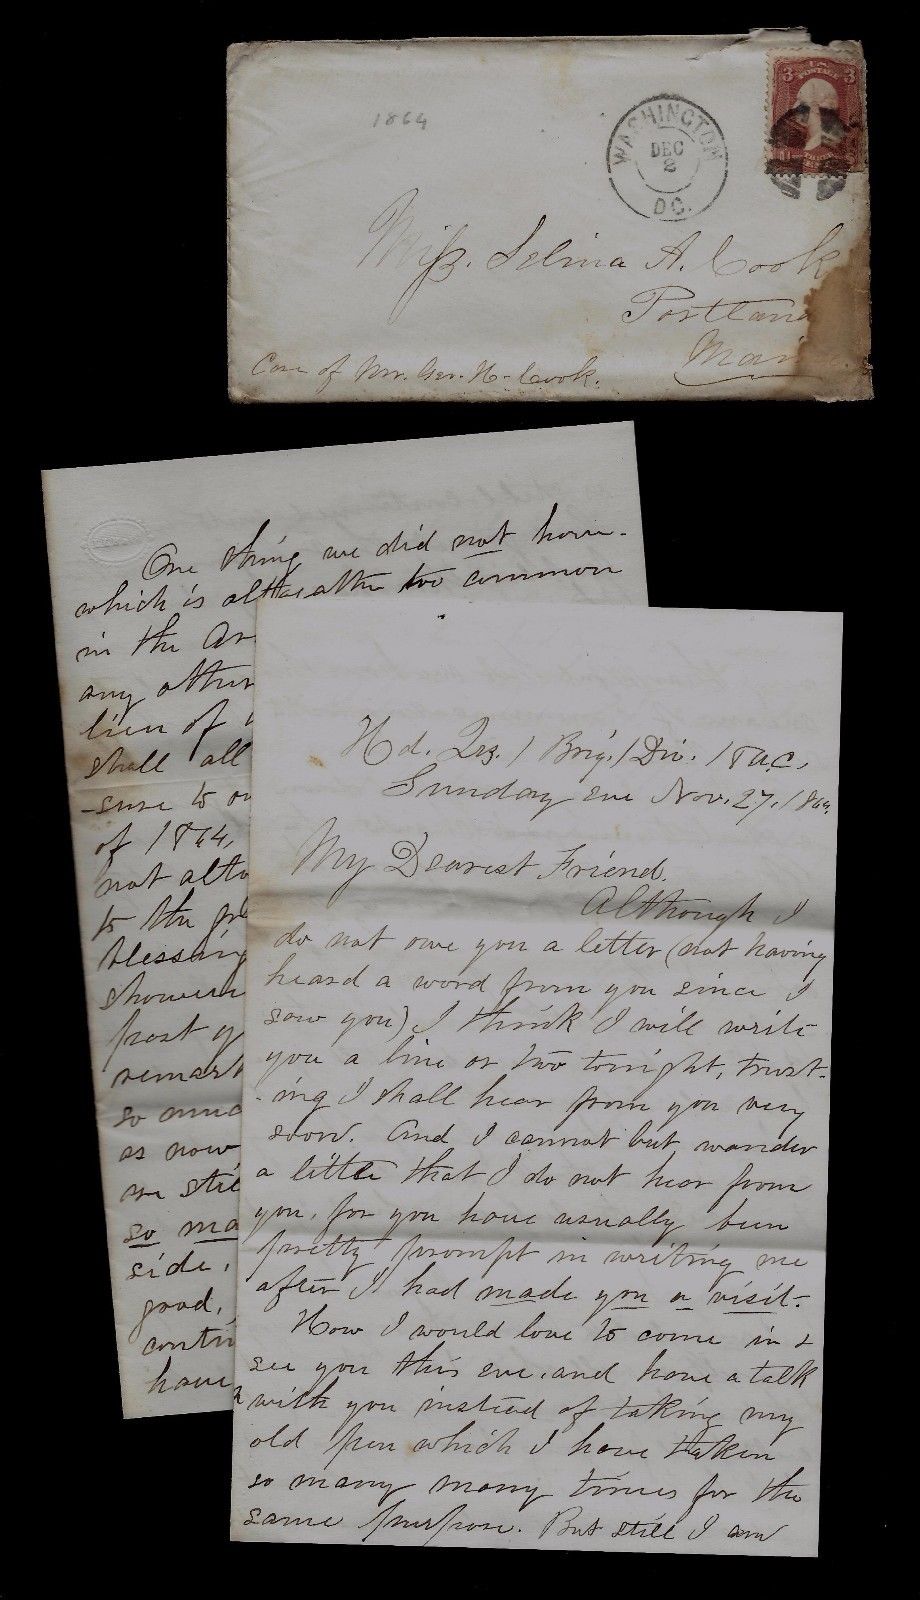 1864
WASHINGTON
DEC
2
D.C.
U.S.
POSTAGE
3 3
Miss. Selina A. Cook
Portland
Main
Care of Mr. Geo. H. Cook.
One thing we did not have-
which is altogather too common
in the Ar
any other
lieu of
shall all
-sure to ou
of 1864,
not alto
to the pre
blessing
shower
past y
remark
so muc
as now
we stil
so ma
side,
good,
contin
have
Hd. Qrs. 1 Brig. 1 Div. 18 A.C.
Sunday eve Nov. 27. 1864.
My Dearest Friend.
Although I
do not owe you a letter (not having
heard a word from you since I
saw you) I think I will write
you a line or two tonight, trust-
-ing I shall hear from you very
soon. And I cannot but wonder
a little that I do not hear from
you, for you have usually been
pretty prompt in writing me
after I had made you a visit.
How I would love to come in &
see you this eve. and have a talk
with you instead of taking my
old pen which I have taken
so many many times for the
same purpose. But still I am